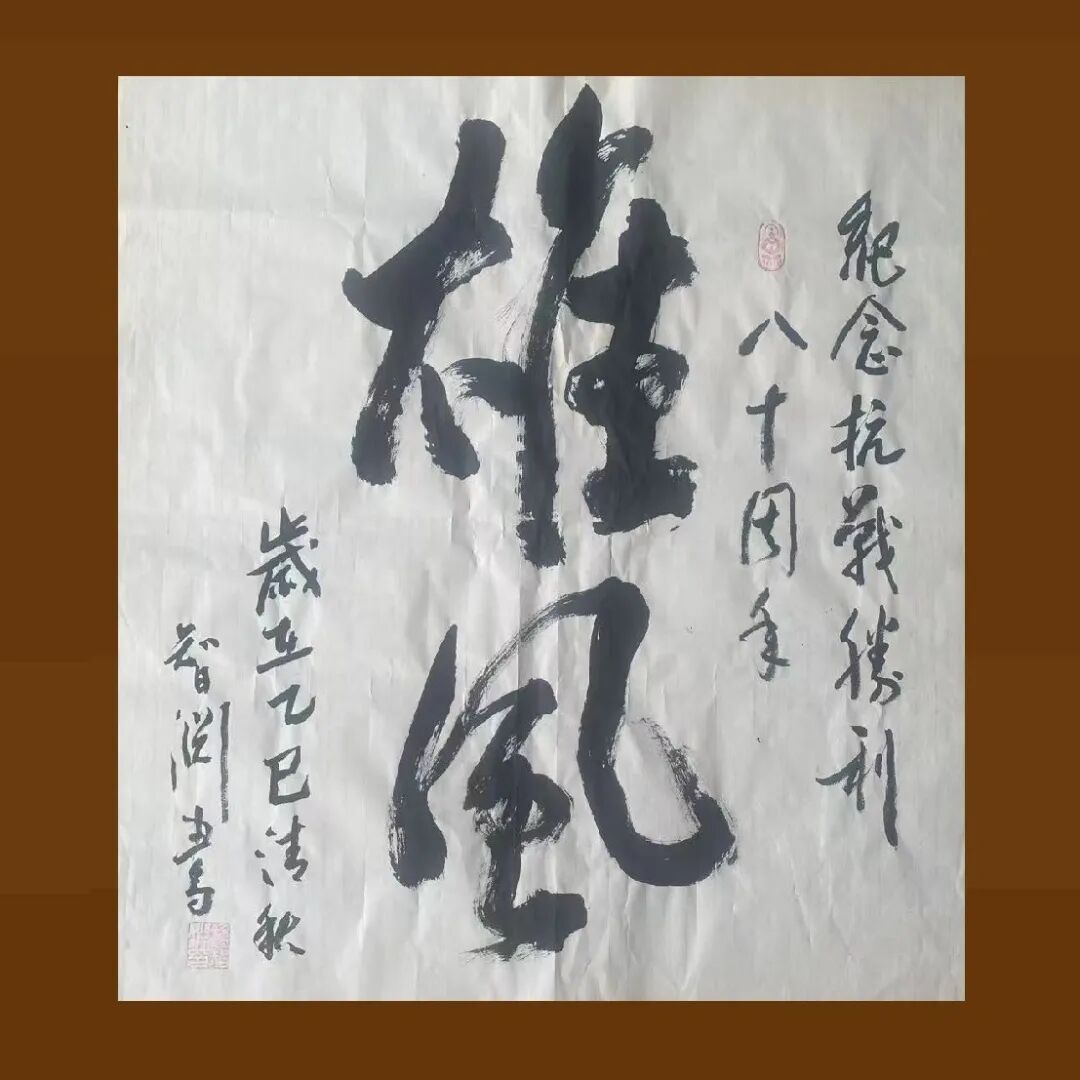 紀念抗戰勝利
八十周年
雄風
歲在乙巳清秋
智淵書